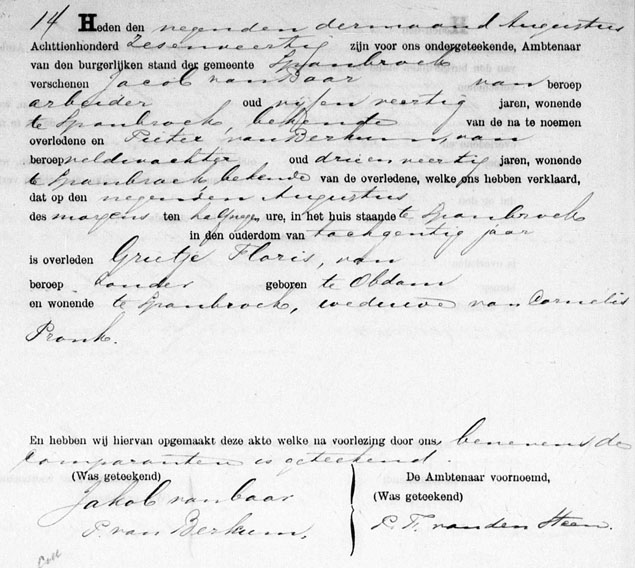 14 Heden den negenden der maand Augustus
Achttienhonderd Zesenveertig zijn voor ons ondergeteekende, Ambtenaar
van den burgerlijken stand der gemeente Spanbroek
verschenen Jacob van Baar van beroep
arbeider oud vijfenveertig jaren, wonende
te Spanbroek, bekende van de na te noemen
overledene en Pieter van Berkum, van
beroep veldwachter oud drieenveertig jaren, wonende
te Spanbroek bekende van de overledene, welke ons hebben verklaard,
dat op den negenden Augustus
des morgens ten half ure, in het huis staande te Spanbroek
in den ouderdom van tachgentig jaar
is overleden Grietje Floris, van
beroep zonder geboren te Obdam
en wonende te Spanbroek, weduwe van Cornelis
Pronk.
En hebben wij hiervan opgemaakt deze akte welke na voorlezing door ons benevens de
comparanten is geteekend.
(Was geteekend)
Jakob van Baar
P. van Berkum.
De Ambtenaar voornoemd,
(Was geteekend)
P. T. van den Steen.